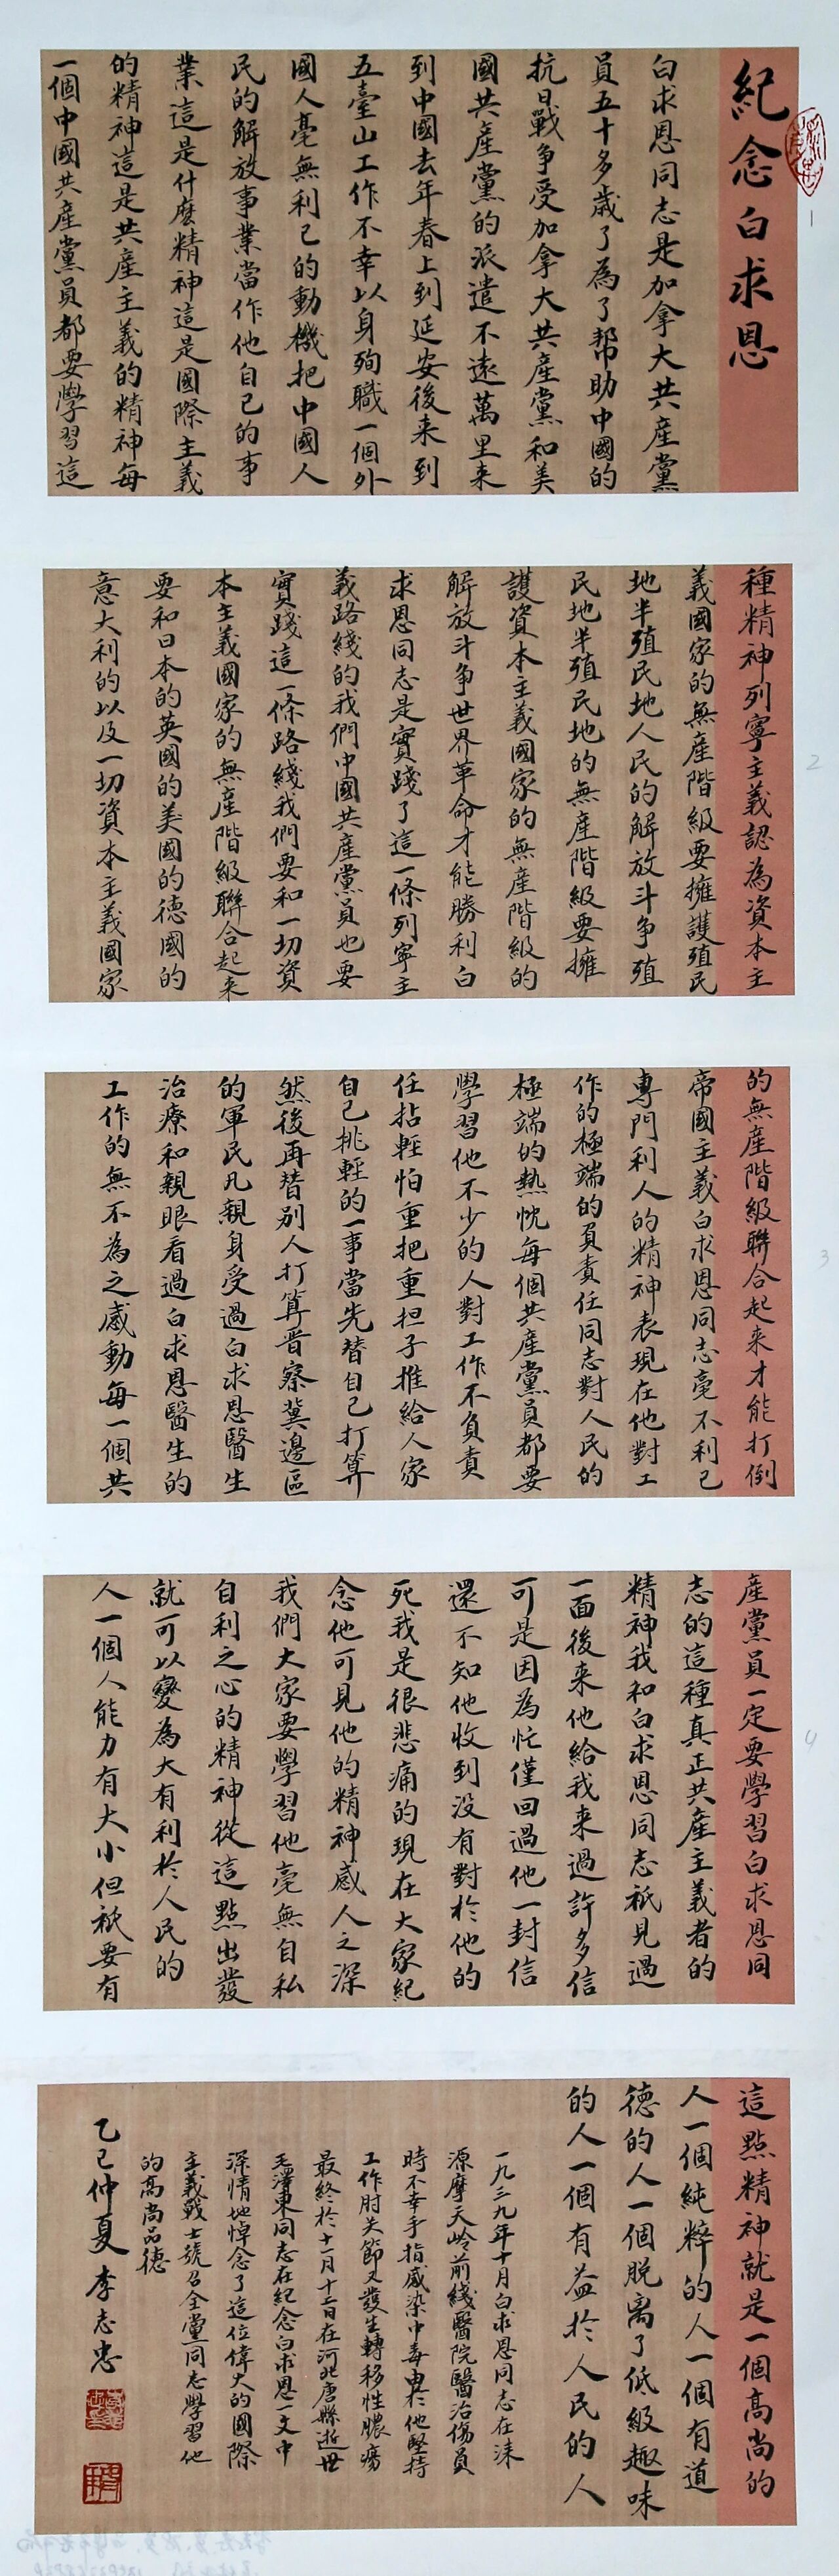 紀念白求恩
白求恩同志是加拿大共産黨
員五十多歲了為了幫助中國的
抗日戰争受加拿大共産黨和美
國共産黨的派遣不遠萬里来
到中國去年春上到延安後来到
五臺山工作不幸以身殉職一個外
國人毫無利己的動機把中國人
民的解放事業當作他自己的事
業這是什麽精神這是國際主義
的精神這是共産主義的精神每
一個中國共産黨員都要學習這
種精神列寧主義認為資本主
義國家的無産階級要擁護殖民
地半殖民地人民的解放斗争殖
民地半殖民地的無産階級要擁
護資本主義國家的無産階級的
解放斗争世界革命才能勝利白
求恩同志是實踐了這一條列寧主
義路綫的我們中國共産黨員也要
實踐這一條路綫我們要和一切資
本主義國家的無産階級聯合起来
要和日本的英國的美國的德國的
意大利的以及一切資本主義國家
的無産階級聯合起来才能打倒
帝國主義白求恩同志毫不利己
專門利人的精神表現在他對工
作的極端的負責任同志對人民的
極端的熱忱每個共産黨員都要
學習他不少的人對工作不負責
任拈輕怕重把重担子推給人家
自己挑輕的一事當先替自己打算
然後再替别人打算晋察冀邊區
的軍民凡親身受過白求恩醫生
治療和親眼看過白求恩醫生的
工作的無不為之感動每一個共
産黨員一定要學習白求恩同
志的這種真正共産主義者的
精神我和白求恩同志祇見過
一面後来他給我来過許多信
可是因為忙僅回過他一封信
還不知他收到没有對於他的
死我是很悲痛的現在大家紀
念他可見他的精神感人之深
我們大家要學習他毫無自私
自利之心的精神從這點出發
就可以變為大有利於人民的
人一個人能力有大小但祇要有
這點精神就是一個高尚的
人一個純粹的人一個有道
德的人一個脱离了低級趣味
的人一個有益於人民的人
一九三九年十月白求恩同志在淶
源摩天岭前綫醫院醫治傷員
時不幸手指感染中毒由於他堅持
工作肘关節又發生轉移性膿瘍
最終於十一月十二日在河北唐縣逝世
毛澤東同志在紀念白求恩一文中
深情地悼念了這位偉大的國際
主義戰士號召全黨同志學習他
的高尚品德
乙巳仲夏李志忠
1
2
3
4